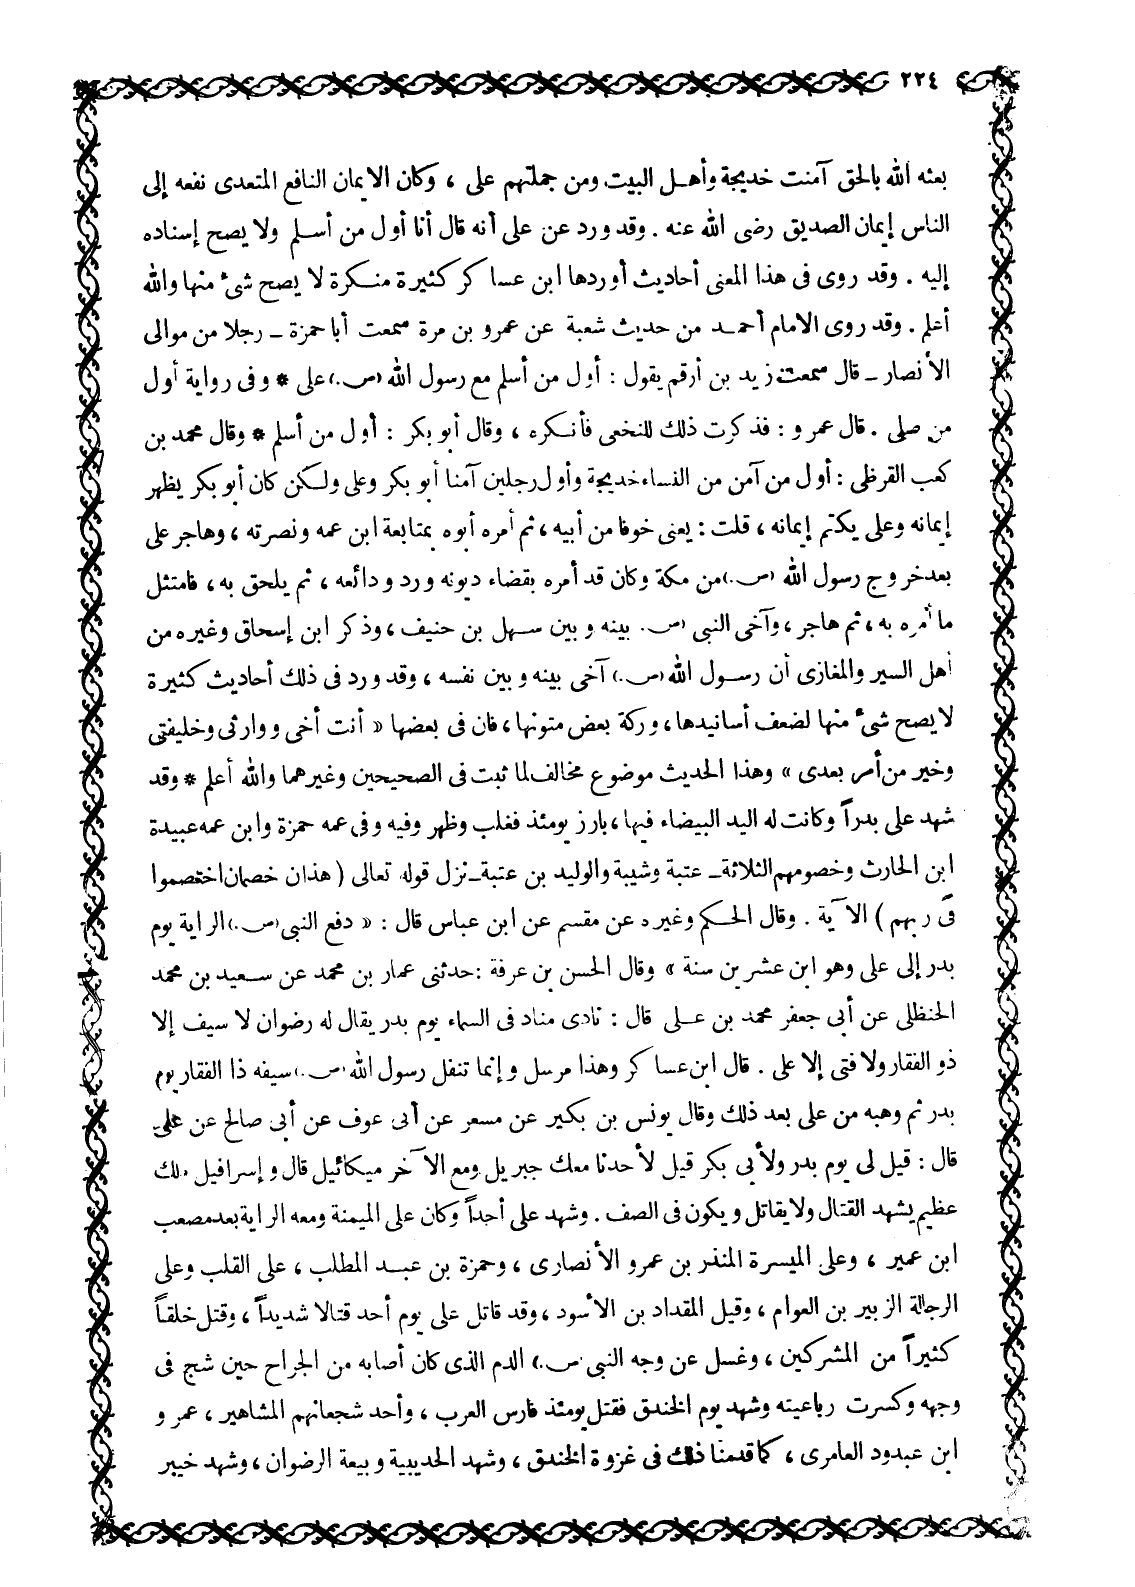 ٢٢٤
بعثه الله بالحق آمنت خديجة وأهل البيت ومن جملتهم على ، وكان الايمان النافع المتعدى نفعه إلى
الناس إيمان الصديق رضى الله عنه . وقد ورد عن على أنه قال أنا أول من أسلم ولا يصح إسناده
إليه . وقد روى فى هذا المعنى أحاديث أوردها ابن عساكر كثيرة منكرة لا يصح شئ منها والله
أعلم . وقد روى الامام أحمد من حديث شعبة عن عمرو بن مرة سمعت أبا حمزة ــ رجلا من موالى
الأنصار ــ قال سمعت زيد بن أرقم يقول : أول من أسلم مع رسول الله (ص.) على * وفى رواية أول
من صلى . قال عمرو : فذكرت ذلك للنخعى فأنكره ، وقال أبو بكر : أول من أسلم * وقال محمد بن
كعب القرظى : أول من آمن من النساء خديجة وأول رجلين آمنا أبو بكر وعلى ولكن كان أبو بكر يظهر
إيمانه وعلى يكتم إيمانه ، قلت : يعنى خوفا من أبيه ، ثم أمره أبوه بمتابعة ابن عمه ونصرته ، وهاجر على
بعد خروج رسول الله (ص.) من مكة وكان قد أمره بقضاء ديونه ورد ودائعه ، ثم يلحق به ، فامتثل
ما أمره به ، ثم هاجر ، وآخى النبى (ص. بينه وبين سهل بن حنيف ، وذكر ابن إسحاق وغيره من
أهل السير والمغازى أن رسول الله (ص.) آخى بينه وبين نفسه ، وقد ورد فى ذلك أحاديث كثيرة
لا يصح شئ منها لضعف أسانيدها ، وركة بعض متونها ، فان فى بعضها « أنت أخى ووارثى وخليفتى
وخير من أمر بعدى » وهذا الحديث موضوع مخالف لما ثبت فى الصحيحين وغيرهما والله أعلم * وقد
شهد على بدراً وكانت له اليد البيضاء فيها ، بارز يومئذ فغلب وظهر وفيه وفى عمه حمزة وابن عمه عبيدة
ابن الحارث وخصومهم الثلاثة ــ عتبة وشيبة والوليد بن عتبة ــ نزل قوله تعالى ( هذان خصمان اختصموا
فى ربهم ) الآية . وقال الحكم وغيره عن مقسم عن ابن عباس قال : « دفع النبى (ص.) الراية يوم
بدر إلى على وهو ابن عشرين سنة » وقال الحسن بن عرفة : حدثنى عمار بن محمد عن سعيد بن محمد
الحنظلى عن أبى جعفر محمد بن على قال : نادى مناد فى السماء يوم بدر يقال له رضوان لا سيف إلا
ذو الفقار ولا فتى إلا على . قال ابن عساكر وهذا مرسل وإنما تنفل رسول الله (ص.) سيفه ذا الفقار يوم
بدر ثم وهبه من على بعد ذلك وقال يونس بن بكير عن مسعر عن أبى عوف عن أبى صالح عن على
قال : قيل لى يوم بدر ولأبى بكر قيل لأحدنا معك جبريل ومع الآخر ميكائيل قال وإسرافيل ملك
عظيم يشهد القتال ولا يقاتل ويكون فى الصف . وشهد على أحداً وكان على الميمنة ومعه الراية بعد مصعب
ابن عمير ، وعلى الميسرة المنذر بن عمرو الأنصارى ، وحمزة بن عبد المطلب ، على القلب وعلى
الرجالة الزبير بن العوام ، وقيل المقداد بن الأسود ، وقد قاتل على يوم أحد قتالا شديداً ، وقتل خلقاً
كثيراً من المشركين ، وغسل عن وجه النبى ص.) الدم الذى كان أصابه من الجراح حين شج فى
وجهه وكسرت رباعيته وشهد يوم الخندق فقتل يومئذ فارس العرب ، وأحد شجعانهم المشاهير ، عمرو
ابن عبدود العامرى ، كما قدمنا ذلك فى غزوة الخندق ، وشهد الحديبية وبيعة الرضوان ، وشهد خيبر